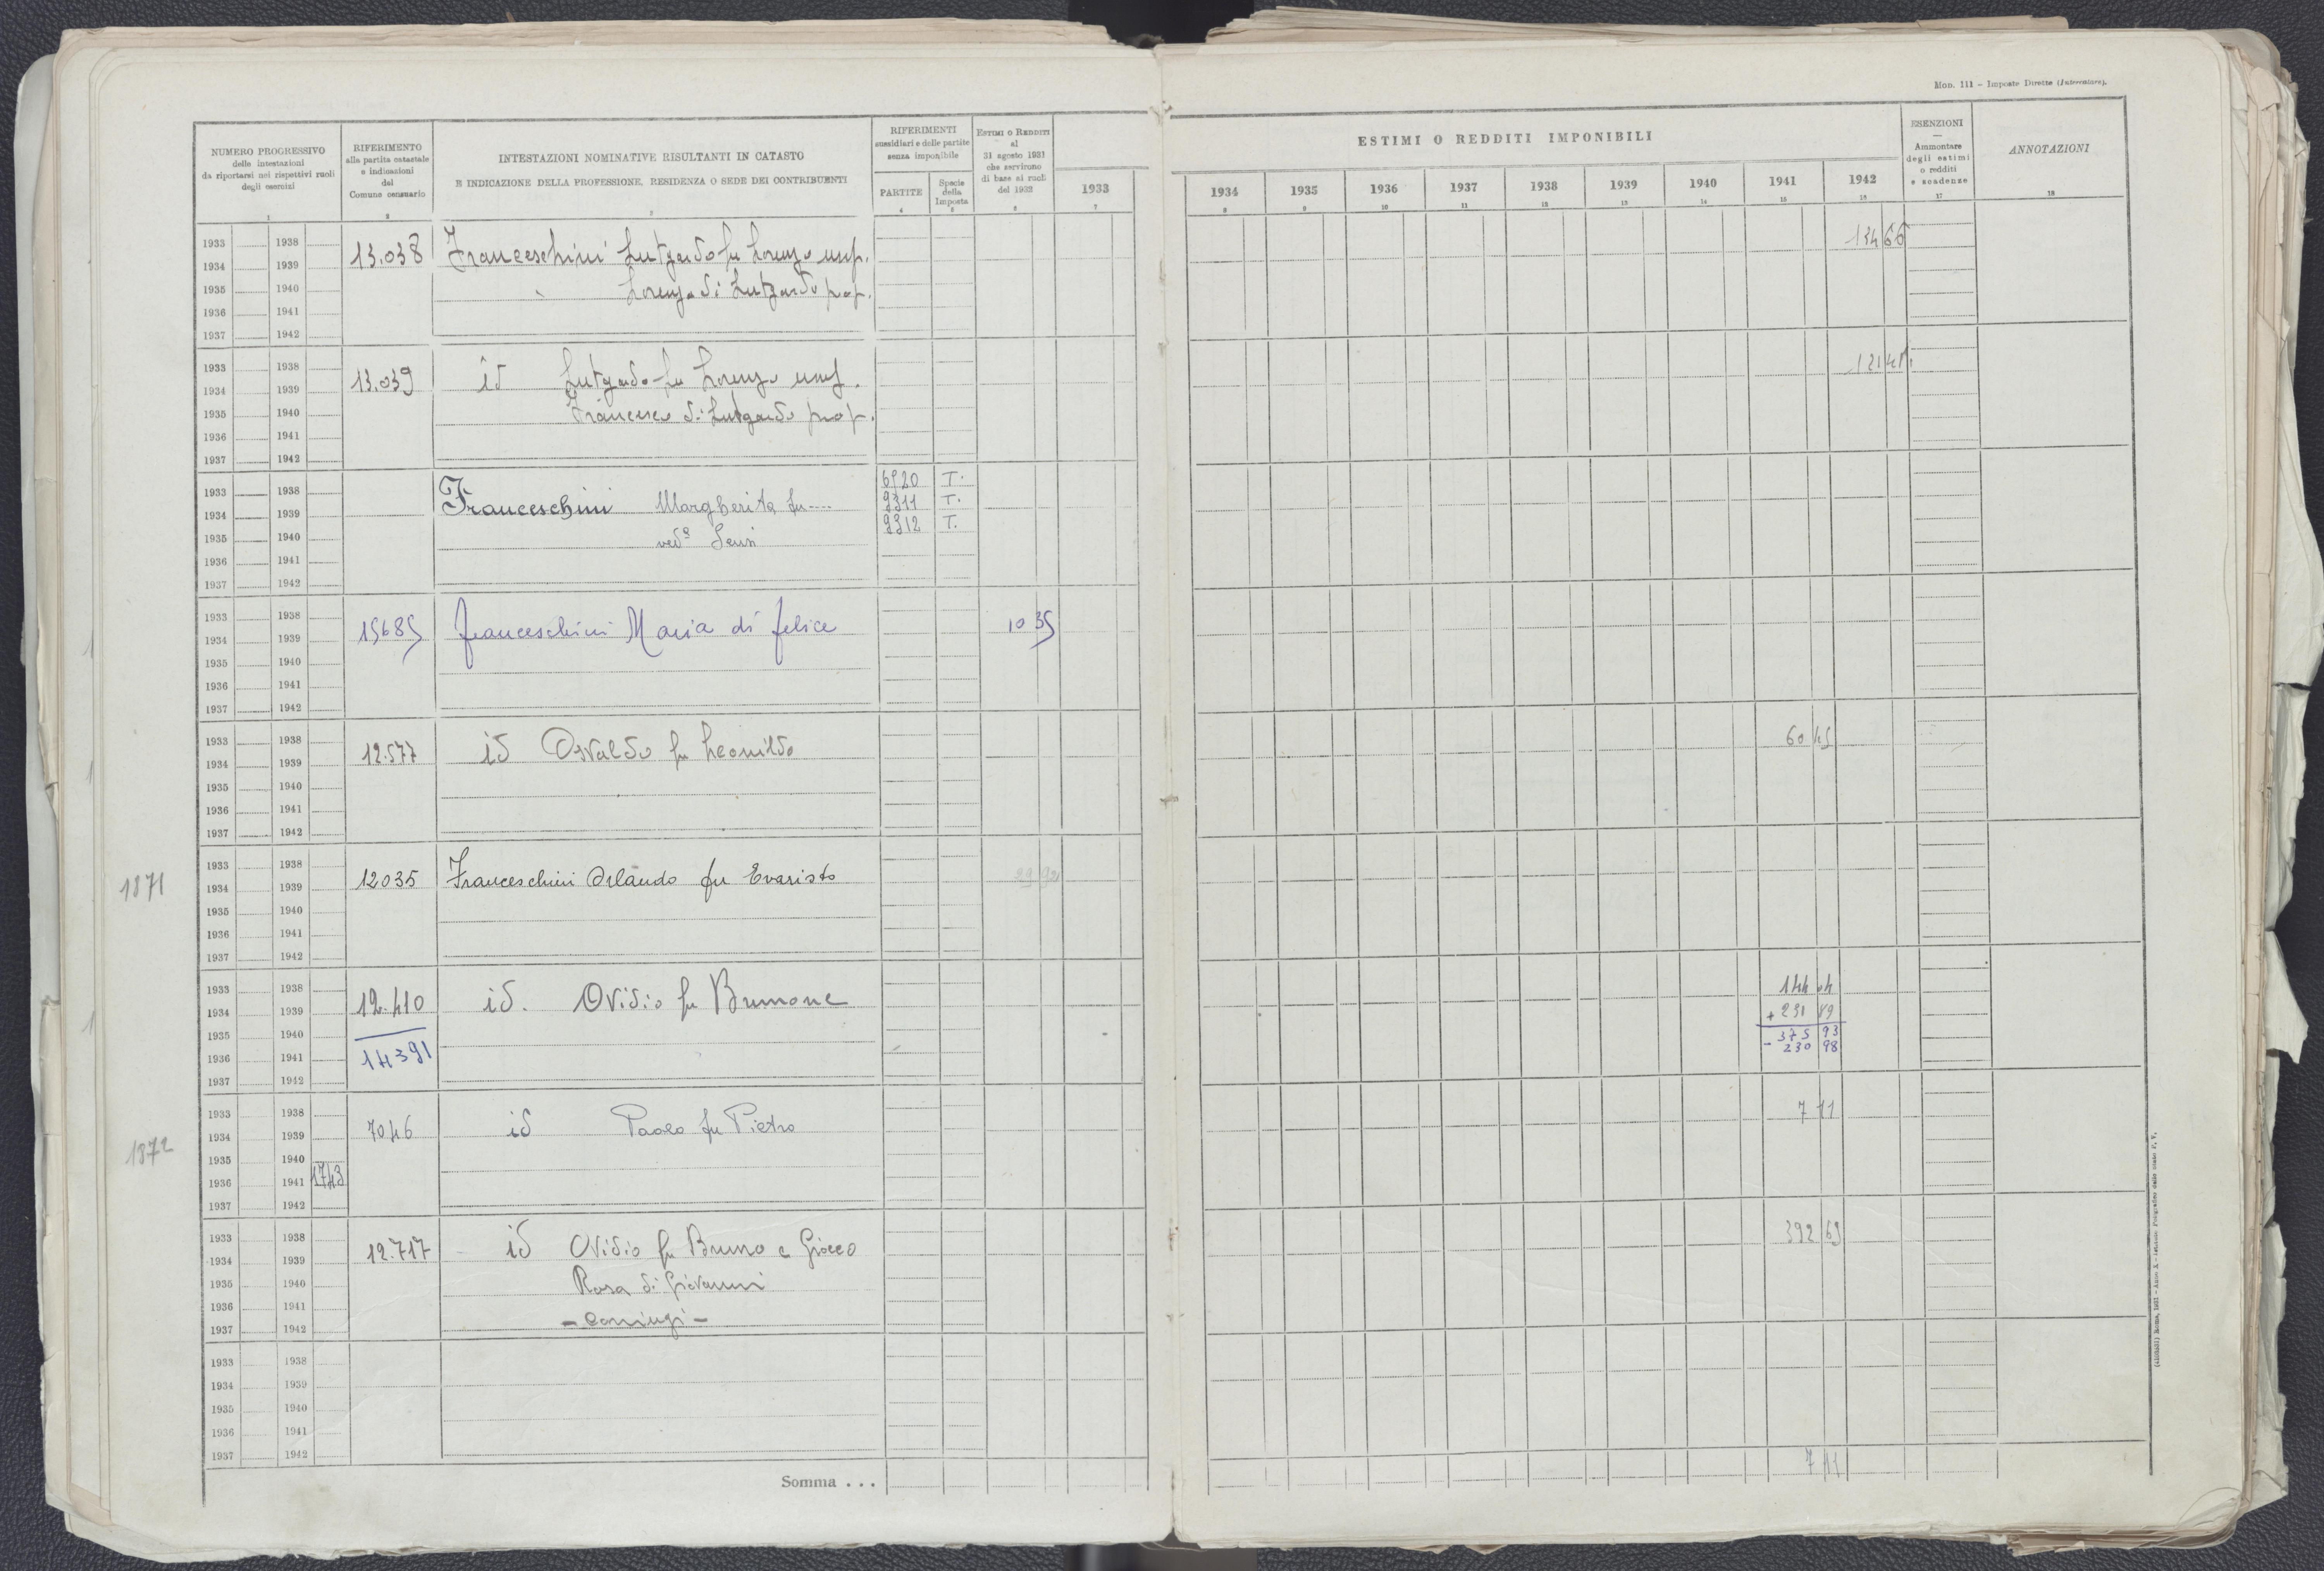 MOD. 111 – Imposte Dirette (Intercalare).
NUMERO PROGRESSIVO
delle intestazioni
da riportarsi nei rispettivi ruoli
degli esercizi
1
RIFERIMENTO
alla partita catastale
e indicazioni
del
Comune censuario
2
INTESTAZIONI NOMINATIVE RISULTANTI IN CATASTO
E INDICAZIONE DELLA PROFESSIONE, RESIDENZA O SEDE DEI CONTRIBUENTI
3
RIFERIMENTI
sussidiari e delle partite
senza imponibile
PARTITE
4
Specie
della
Imposta
5
ESTIMI O REDDITI
al
31 agosto 1931
che servirono
di base ai ruoli
del 1932
6
1933
7
ESTIMI O REDDITI IMPONIBILI
1934 1935 1936 1937 1938 1939 1940 1941 1942
8 9 10 11 12 13 14 15 16
ESENZIONI
—
Ammontare
degli estimi
o redditi
e scadenze
17
ANNOTAZIONI
18
1933 1938
1934 1939
1935 1940
1936 1941
1937 1942
13.038 Franceschini Lutgardo fu Lorenzo usuf. 134 66
Lorenzo di Lutgardo prop.
1933 1938
1934 1939
1935 1940
1936 1941
1937 1942
13.039 id Lutgardo fu Lorenzo usuf. 121
Francesco di Lutgardo prop.
1933 1938
1934 1939
1935 1940
1936 1941
1937 1942
Franceschini Margherita fu ....
ved.ª
6920 T.
9311 T.
9312 T.
1933 1938
1934 1939
1935 1940
1936 1941
1937 1942
15685 Franceschini Maria di felice 10 35
1933 1938
1934 1939
1935 1940
1936 1941
1937 1942
12.577 id Osvaldo fu Leonildo 60 45
1871
1933 1938
1934 1939
1935 1940
1936 1941
1937 1942
12035 Franceschini Orlando fu Evaristo 29 92
1933 1938
1934 1939
1935 1940
1936 1941
1937 1942
12.410 id. Ovidio fu Brunone
14391
144 04
+ 231 89
375 93
- 230 98
1872
1933 1938
1934 1939
1935 1940
1936 1941 1743
1937 1942
7046 id Paolo fu Pietro 7 11
1933 1938
1934 1939
1935 1940
1936 1941
1937 1942
12.717 id Ovidio fu Bruno e Giocco 392 69
Rosa di Giovanni
– coniugi –
1933 1938
1934 1939
1935 1940
1936 1941
1937 1942
Somma . . . 7 11